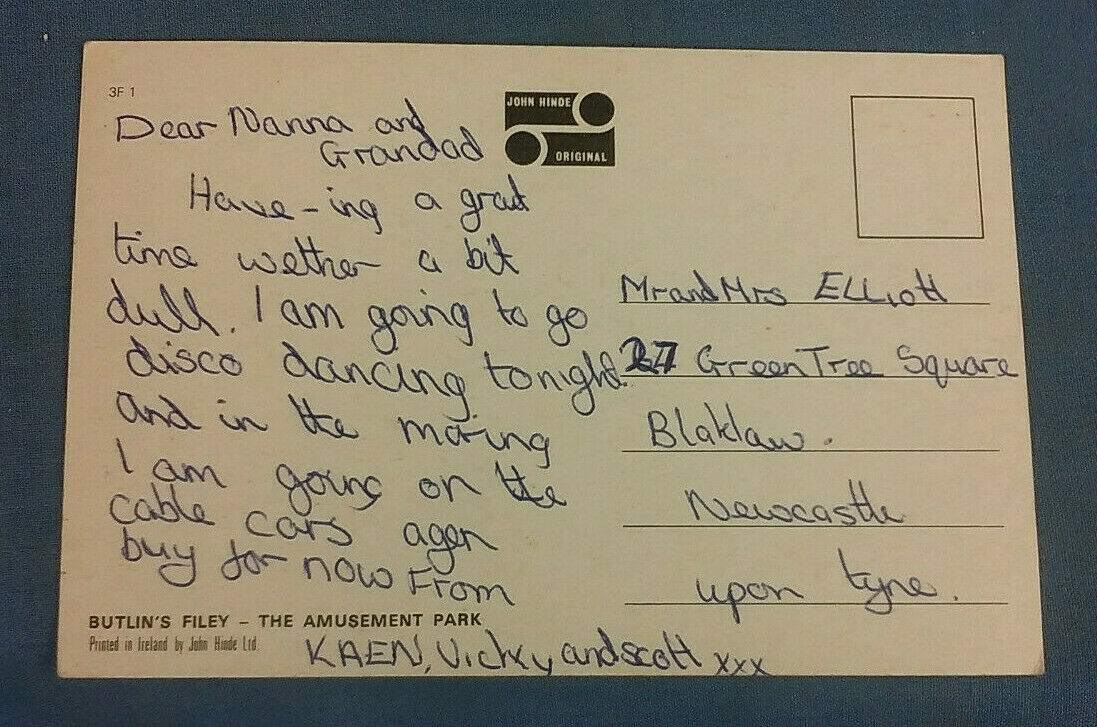 3F 1
JOHN HINDE
ORIGINAL
Dear Nanna and
Grandad
Have-ing a grat
time wether a bit
dull. I am going to go
disco dancing tonight.
and in the moring
I am going on the
cable cars agen
buy for now From
KAEN, Vicky and scott xxx
Mr and Mrs Elliott
27 Green Tree Square
Blaklaw.
Newcastle
upon tyne.
BUTLIN'S FILEY – THE AMUSEMENT PARK
Printed in Ireland by John Hinde Ltd.